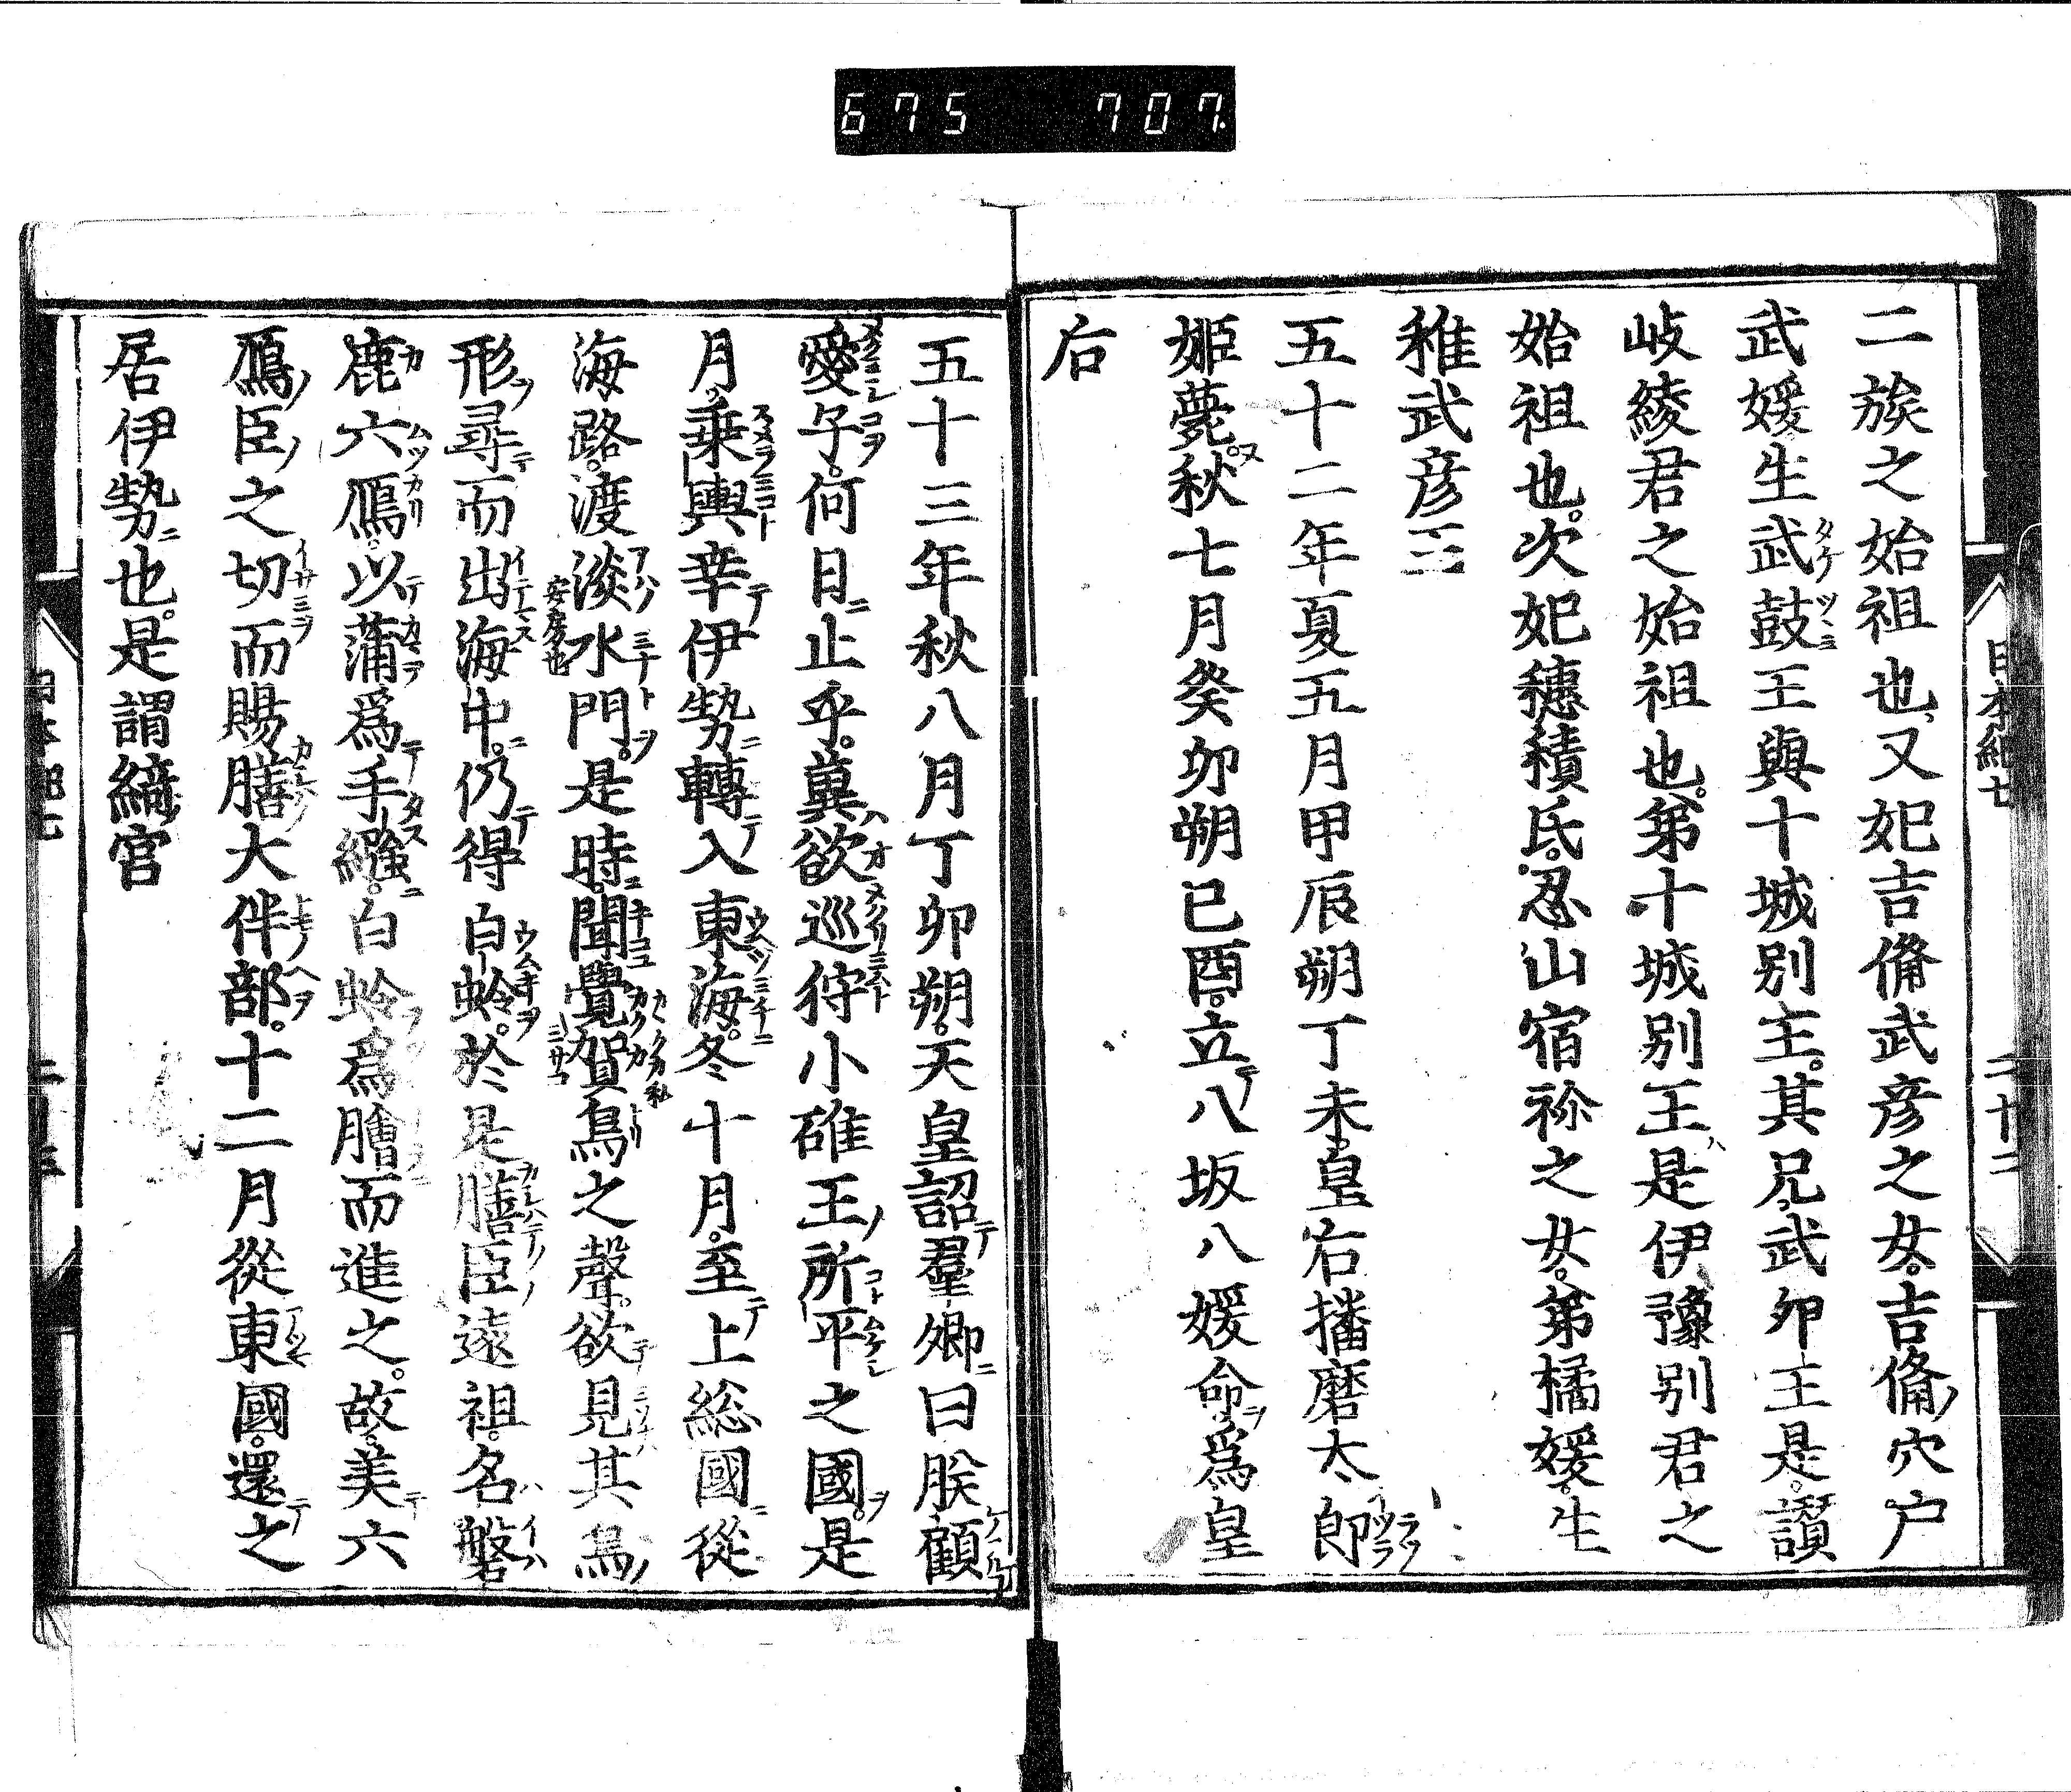 675 707.
二族之始祖也又妃吉備武彦之女吉備穴戸
武媛生武鼓王與十城別王其兄武卯王是讃
岐綾君之始祖也第十城別王是伊豫別君之
始祖也次妃穗積氏忍山宿祢之女第橘媛生
稚武彦王
五十二年夏五月甲辰朔丁未皇右播磨太郎
姫薨秋七月癸卯朔已酉立八坂八媛命爲皇
右
五十三年秋八月丁卯朔天皇詔羣卿曰朕顧
愛子何日止乎冀欲巡狩小碓王所平之國是
月乗輿幸伊勢轉入東海冬十月至上総國從
海路渡淡水門是時聞覺賀鳥之聲欲見其鳥
安房也
形尋而出海中仍得白蛤於是膳臣遠祖名磐
鹿六鴈以蒲爲手繦白蛤爲膾而進之故美六
鴈臣之切而賜膳大伴部十二月從東國還之
居伊勢也是謂綺宮
日本紀七
二十二